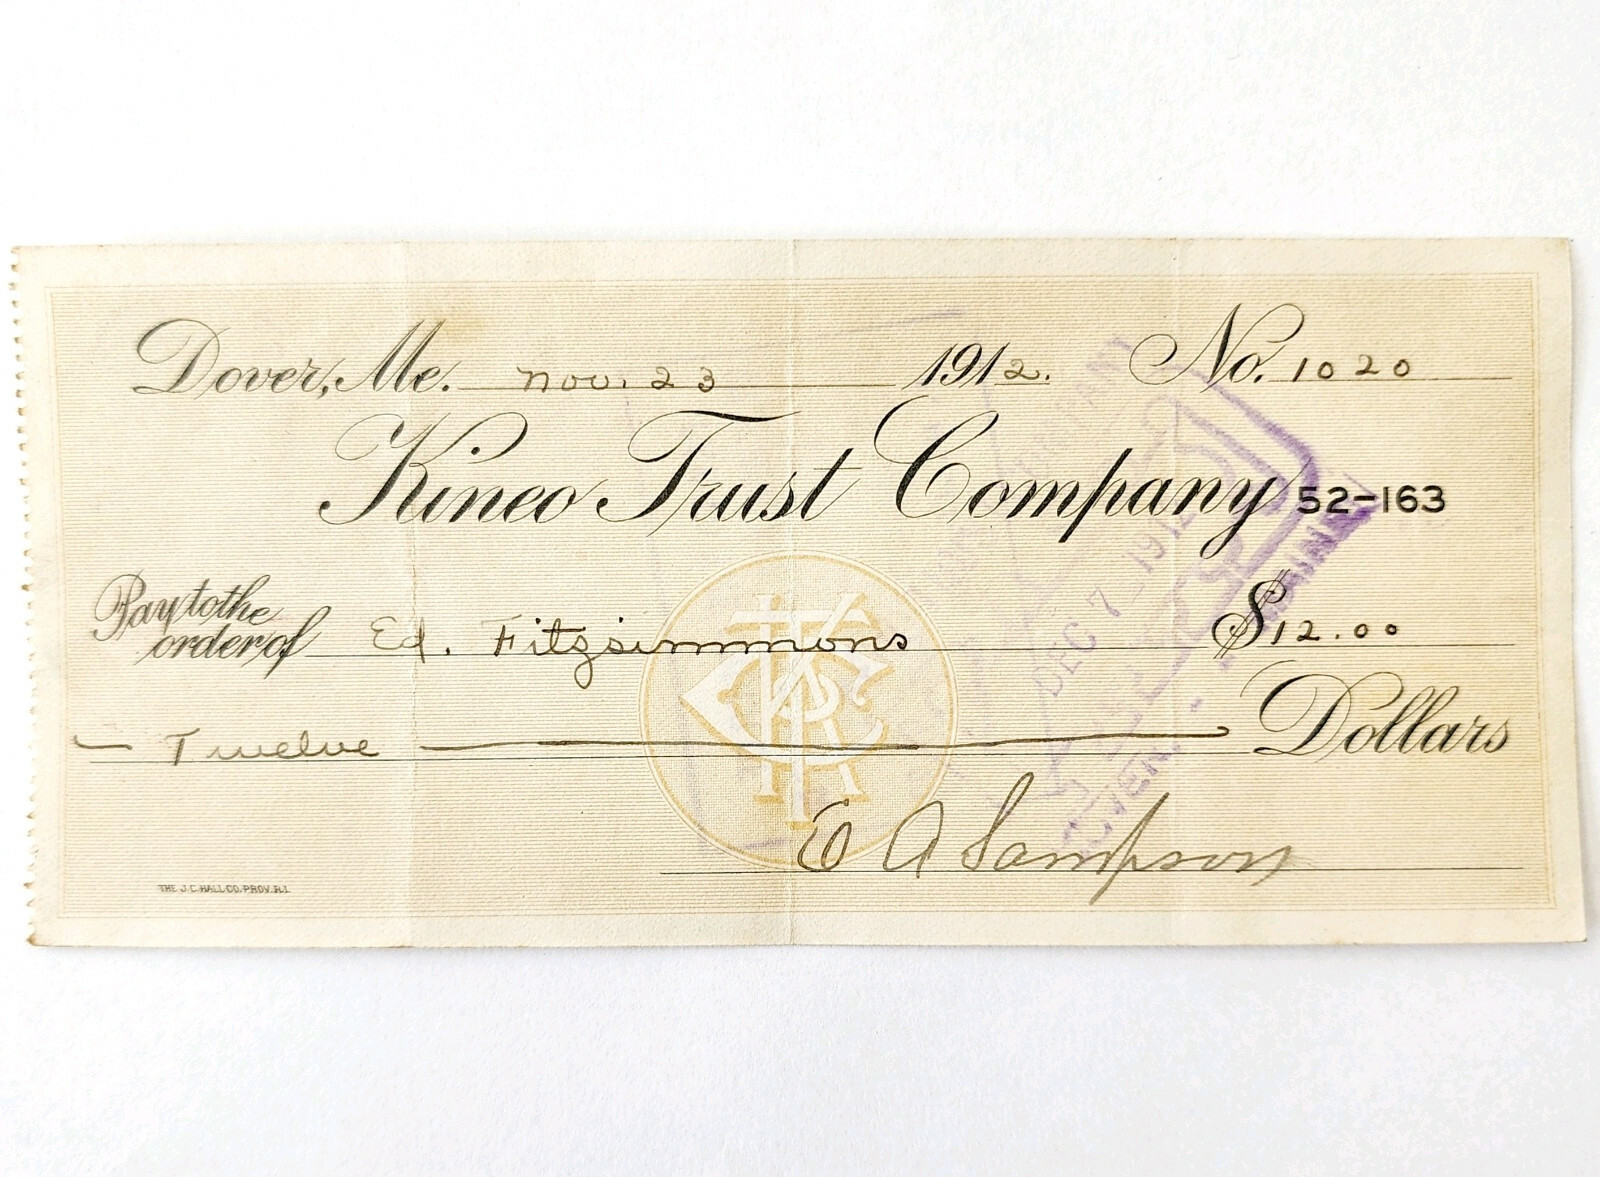 Dover, Me. Nov. 23 1912. No. 1020
Kineo Trust Company 52-163
Pay to the
order of Ed. Fitzsimmons $12.00
Twelve Dollars
E A Sampson
THE J.C. HALL CO. PROV. R.I.
DEC 7 1912